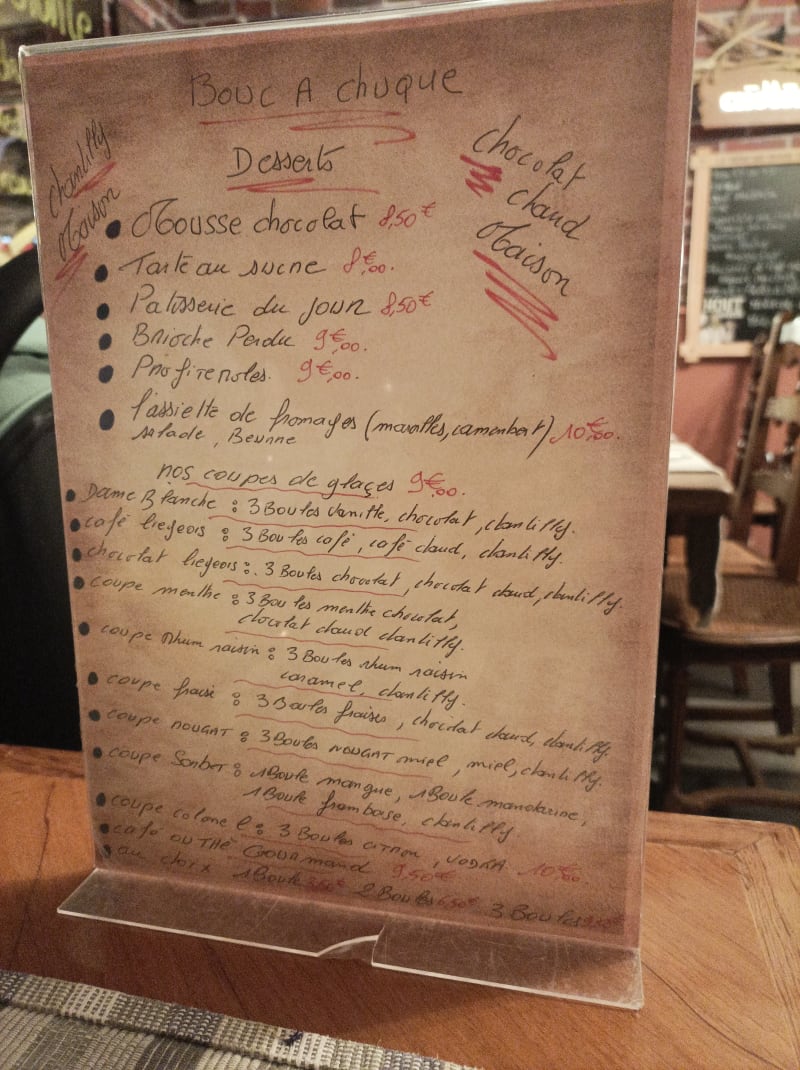 Bouc A chuque
Desserts
chantilly
Maison
chocolat
chaud
Maison
Mousse chocolat 8,50€
Tarte au sucre 8€,00.
Patisserie du jour 8,50€
Brioche Perdu 9€,00.
Profiteroles. 9€,00.
l'assiette de fromages (maroilles, camembert) 10€,00.
salade, Beurre
nos coupes de glaçes 9€,00.
Dame Blanche : 3 Boules vanille, chocolat, chantilly.
café liegeois : 3 Boules café, café chaud, chantilly.
chocolat liegeois : 3 Boules chocolat, chocolat chaud, chantilly.
coupe menthe : 3 Boules menthe chocolat,
chocolat chaud chantilly.
coupe Rhum raisin : 3 Boules rhum raisin
caramel, chantilly.
coupe fraise : 3 Boules fraises, chocolat chaud, chantilly.
coupe NOUGAT : 3 Boules NOUGAT miel, miel, chantilly.
coupe Sorbet : 1 Boule mangue, 1 Boule mandarine,
1 Boule framboise, chantilly.
coupe colonel : 3 Boules CITRON, VODKA. 10€,00.
café ou THÉ Gourmand 9,50€
au choix 1 Boule 2 Boules 3 Boules